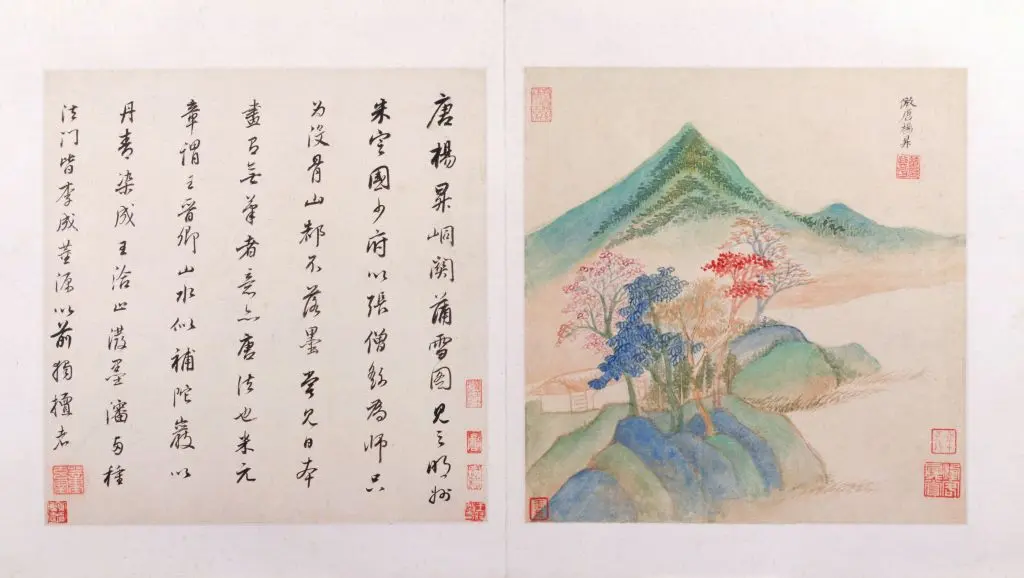 唐楊昇峒關蒲雪图見之明州
朱定國少府以張僧繇為師只
为沒骨山都不落墨嘗見日本
畫有無筆者意亦唐法也米元
章謂王晉卿山水似補陀巖以
丹青染成王洽潑墨瀋種
法门皆李成董源以前獨擅者
倣唐楊昇